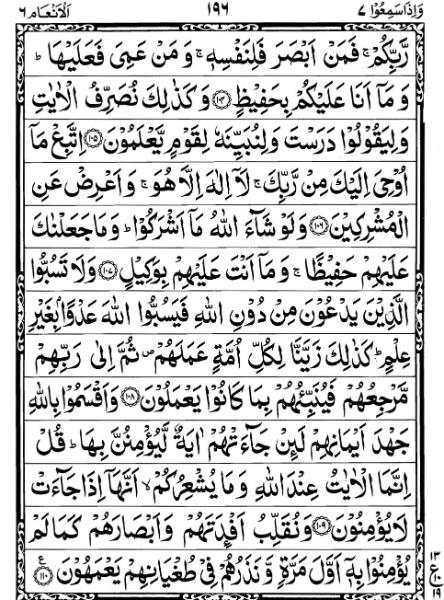 وَاِذَاسَمِعُوْا ۷ ۱۹۶ اَلْاَنْعَام ۶
رَّبِّكُمْ ۚ فَمَنْ اَبْصَرَ فَلِنَفْسِهٖ ۚ وَمَنْ عَمِیَ فَعَلَیْهَا ؕ
وَمَاۤ اَنَا عَلَیْكُمْ بِحَفِیْظٍ ﴿۱۰۴﴾ وَكَذٰلِكَ نُصَرِّفُ الْاٰیٰتِ
وَلِیَقُوْلُوْا دَرَسْتَ وَلِنُبَیِّنَهٗ لِقَوْمٍ یَّعْلَمُوْنَ ﴿۱۰۵﴾ اِتَّبِعْ مَاۤ
اُوْحِیَ اِلَیْكَ مِنْ رَّبِّكَ ۚ لَاۤ اِلٰهَ اِلَّا هُوَ ۚ وَاَعْرِضْ عَنِ
الْمُشْرِكِیْنَ ﴿۱۰۶﴾ وَلَوْ شَآءَ اللّٰهُ مَاۤ اَشْرَكُوْا ؕ وَمَا جَعَلْنٰكَ
عَلَیْهِمْ حَفِیْظًا ۚ وَمَاۤ اَنْتَ عَلَیْهِمْ بِوَكِیْلٍ ﴿۱۰۷﴾ وَلَا تَسُبُّوا
الَّذِیْنَ یَدْعُوْنَ مِنْ دُوْنِ اللّٰهِ فَیَسُبُّوا اللّٰهَ عَدْوًۢا بِغَیْرِ
عِلْمٍ ؕ كَذٰلِكَ زَیَّنَّا لِكُلِّ اُمَّةٍ عَمَلَهُمْ ۪ ثُمَّ اِلٰی رَبِّهِمْ
مَّرْجِعُهُمْ فَیُنَبِّئُهُمْ بِمَا كَانُوْا یَعْمَلُوْنَ ﴿۱۰۸﴾ وَاَقْسَمُوْا بِاللّٰهِ
جَهْدَ اَیْمَانِهِمْ لَئِنْ جَآءَتْهُمْ اٰیَةٌ لَّیُؤْمِنُنَّ بِهَا ؕ قُلْ
اِنَّمَا الْاٰیٰتُ عِنْدَ اللّٰهِ وَمَا یُشْعِرُكُمْ ۙ اَنَّهَاۤ اِذَا جَآءَتْ
لَا یُؤْمِنُوْنَ ﴿۱۰۹﴾ وَنُقَلِّبُ اَفْـِٕدَتَهُمْ وَاَبْصَارَهُمْ كَمَا لَمْ
یُؤْمِنُوْا بِهٖۤ اَوَّلَ مَرَّةٍ وَّنَذَرُهُمْ فِیْ طُغْیَانِهِمْ یَعْمَهُوْنَ ﴿۱۱۰﴾ ع
۱۳
ع ۱۰
۱۹